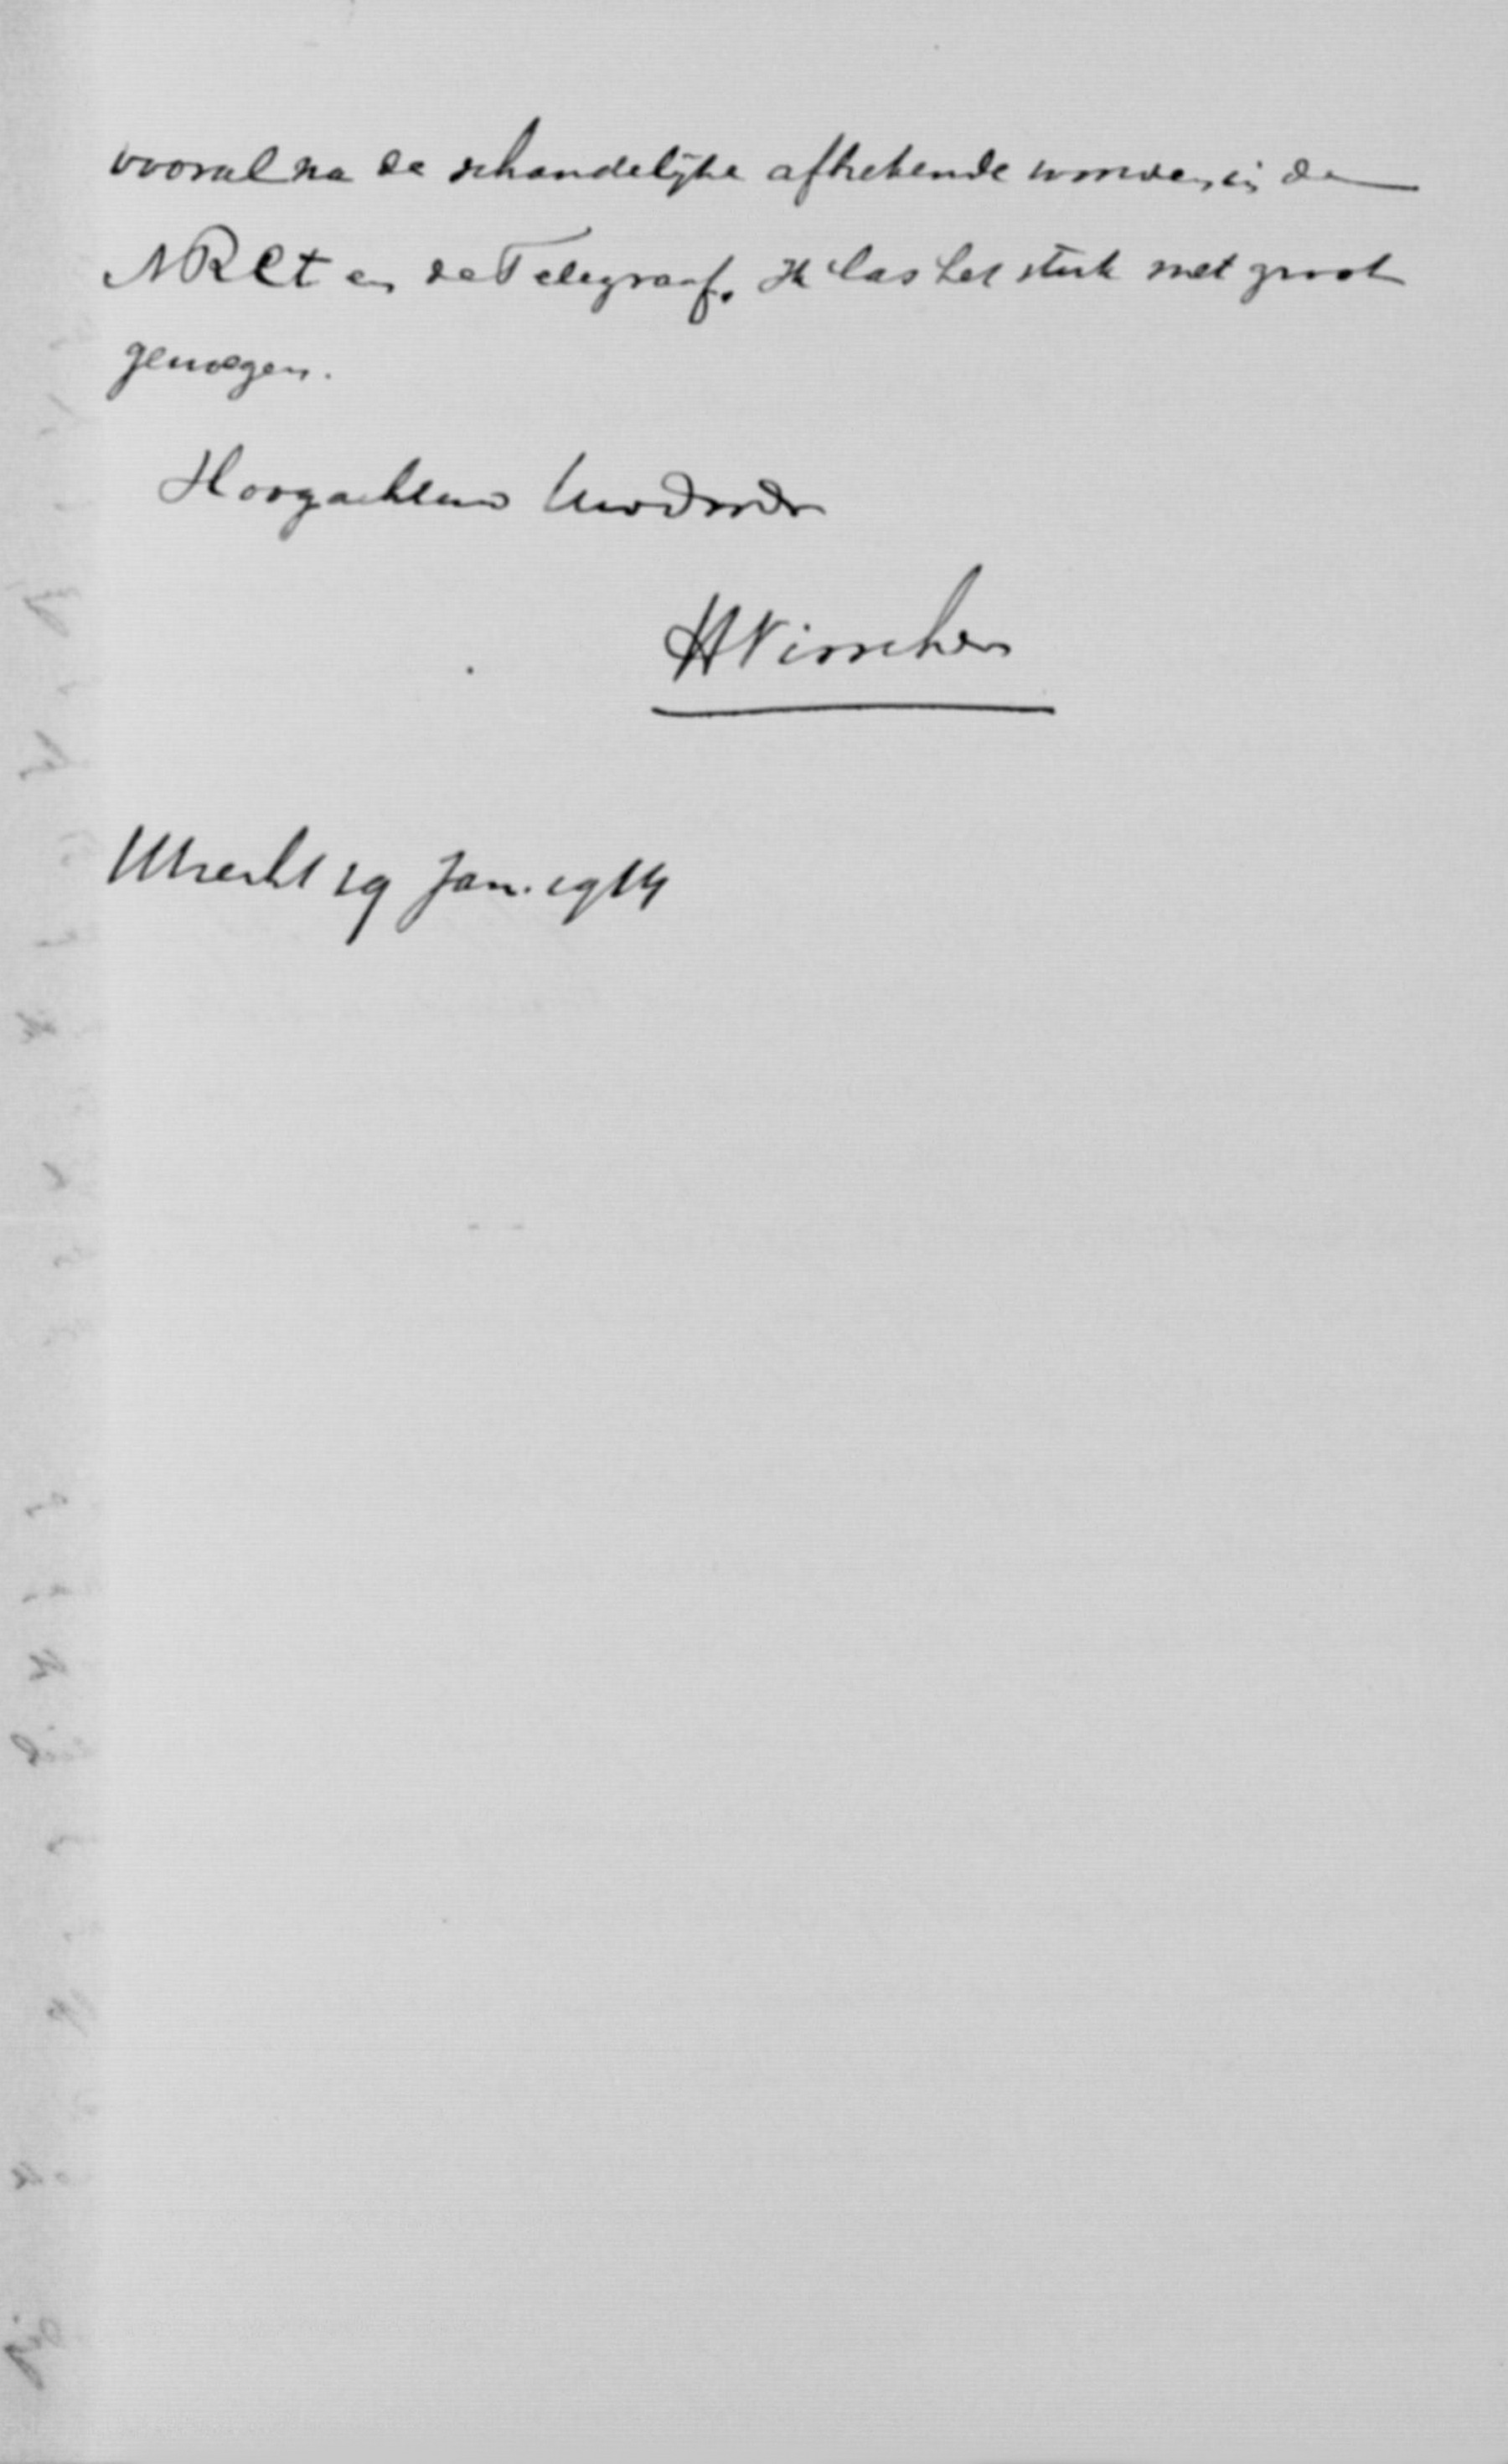 vooral na de schandelijke afbrekende woorden in de
NRCt en de Telegraaf. Ik las het stuk met groot
genoegen.
Hoogachtend Uwdww
HVisscher
Utrecht 29 Jan. 1914